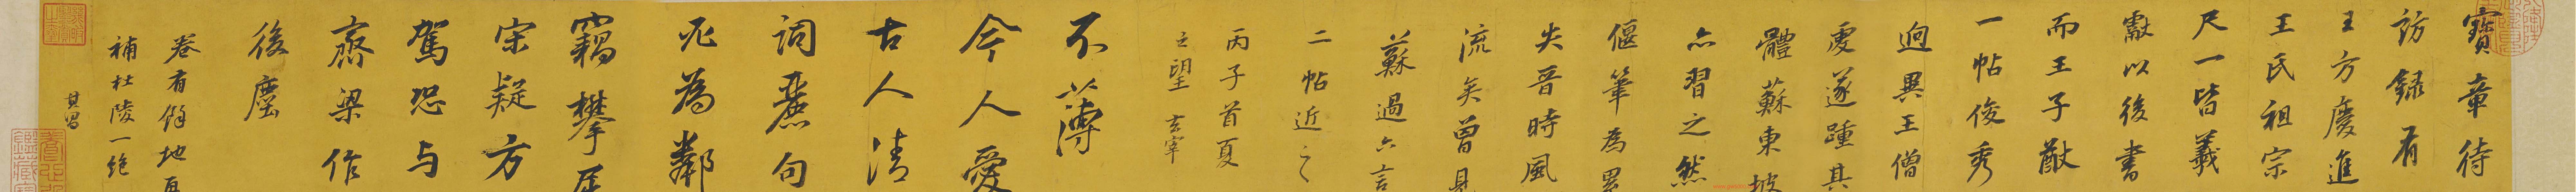 寶章待
訪錄有
王方慶進
王氏祖宗
尺一皆羲
獻以後書
而王子猷
一帖俊秀
迥異王僧
虔遂踵其
體蘇東坡
亦習之然
偃筆為累
失晉時風
流矣曾見
蘇過六言
二帖近之
丙子首夏
之望 玄宰
不薄
今人愛
古人清
詞麗句
必為鄰
竊攀屈
宋疑方
駕恐与
齋梁作
後塵
卷有餘地再
補杜陵一絕
其昌